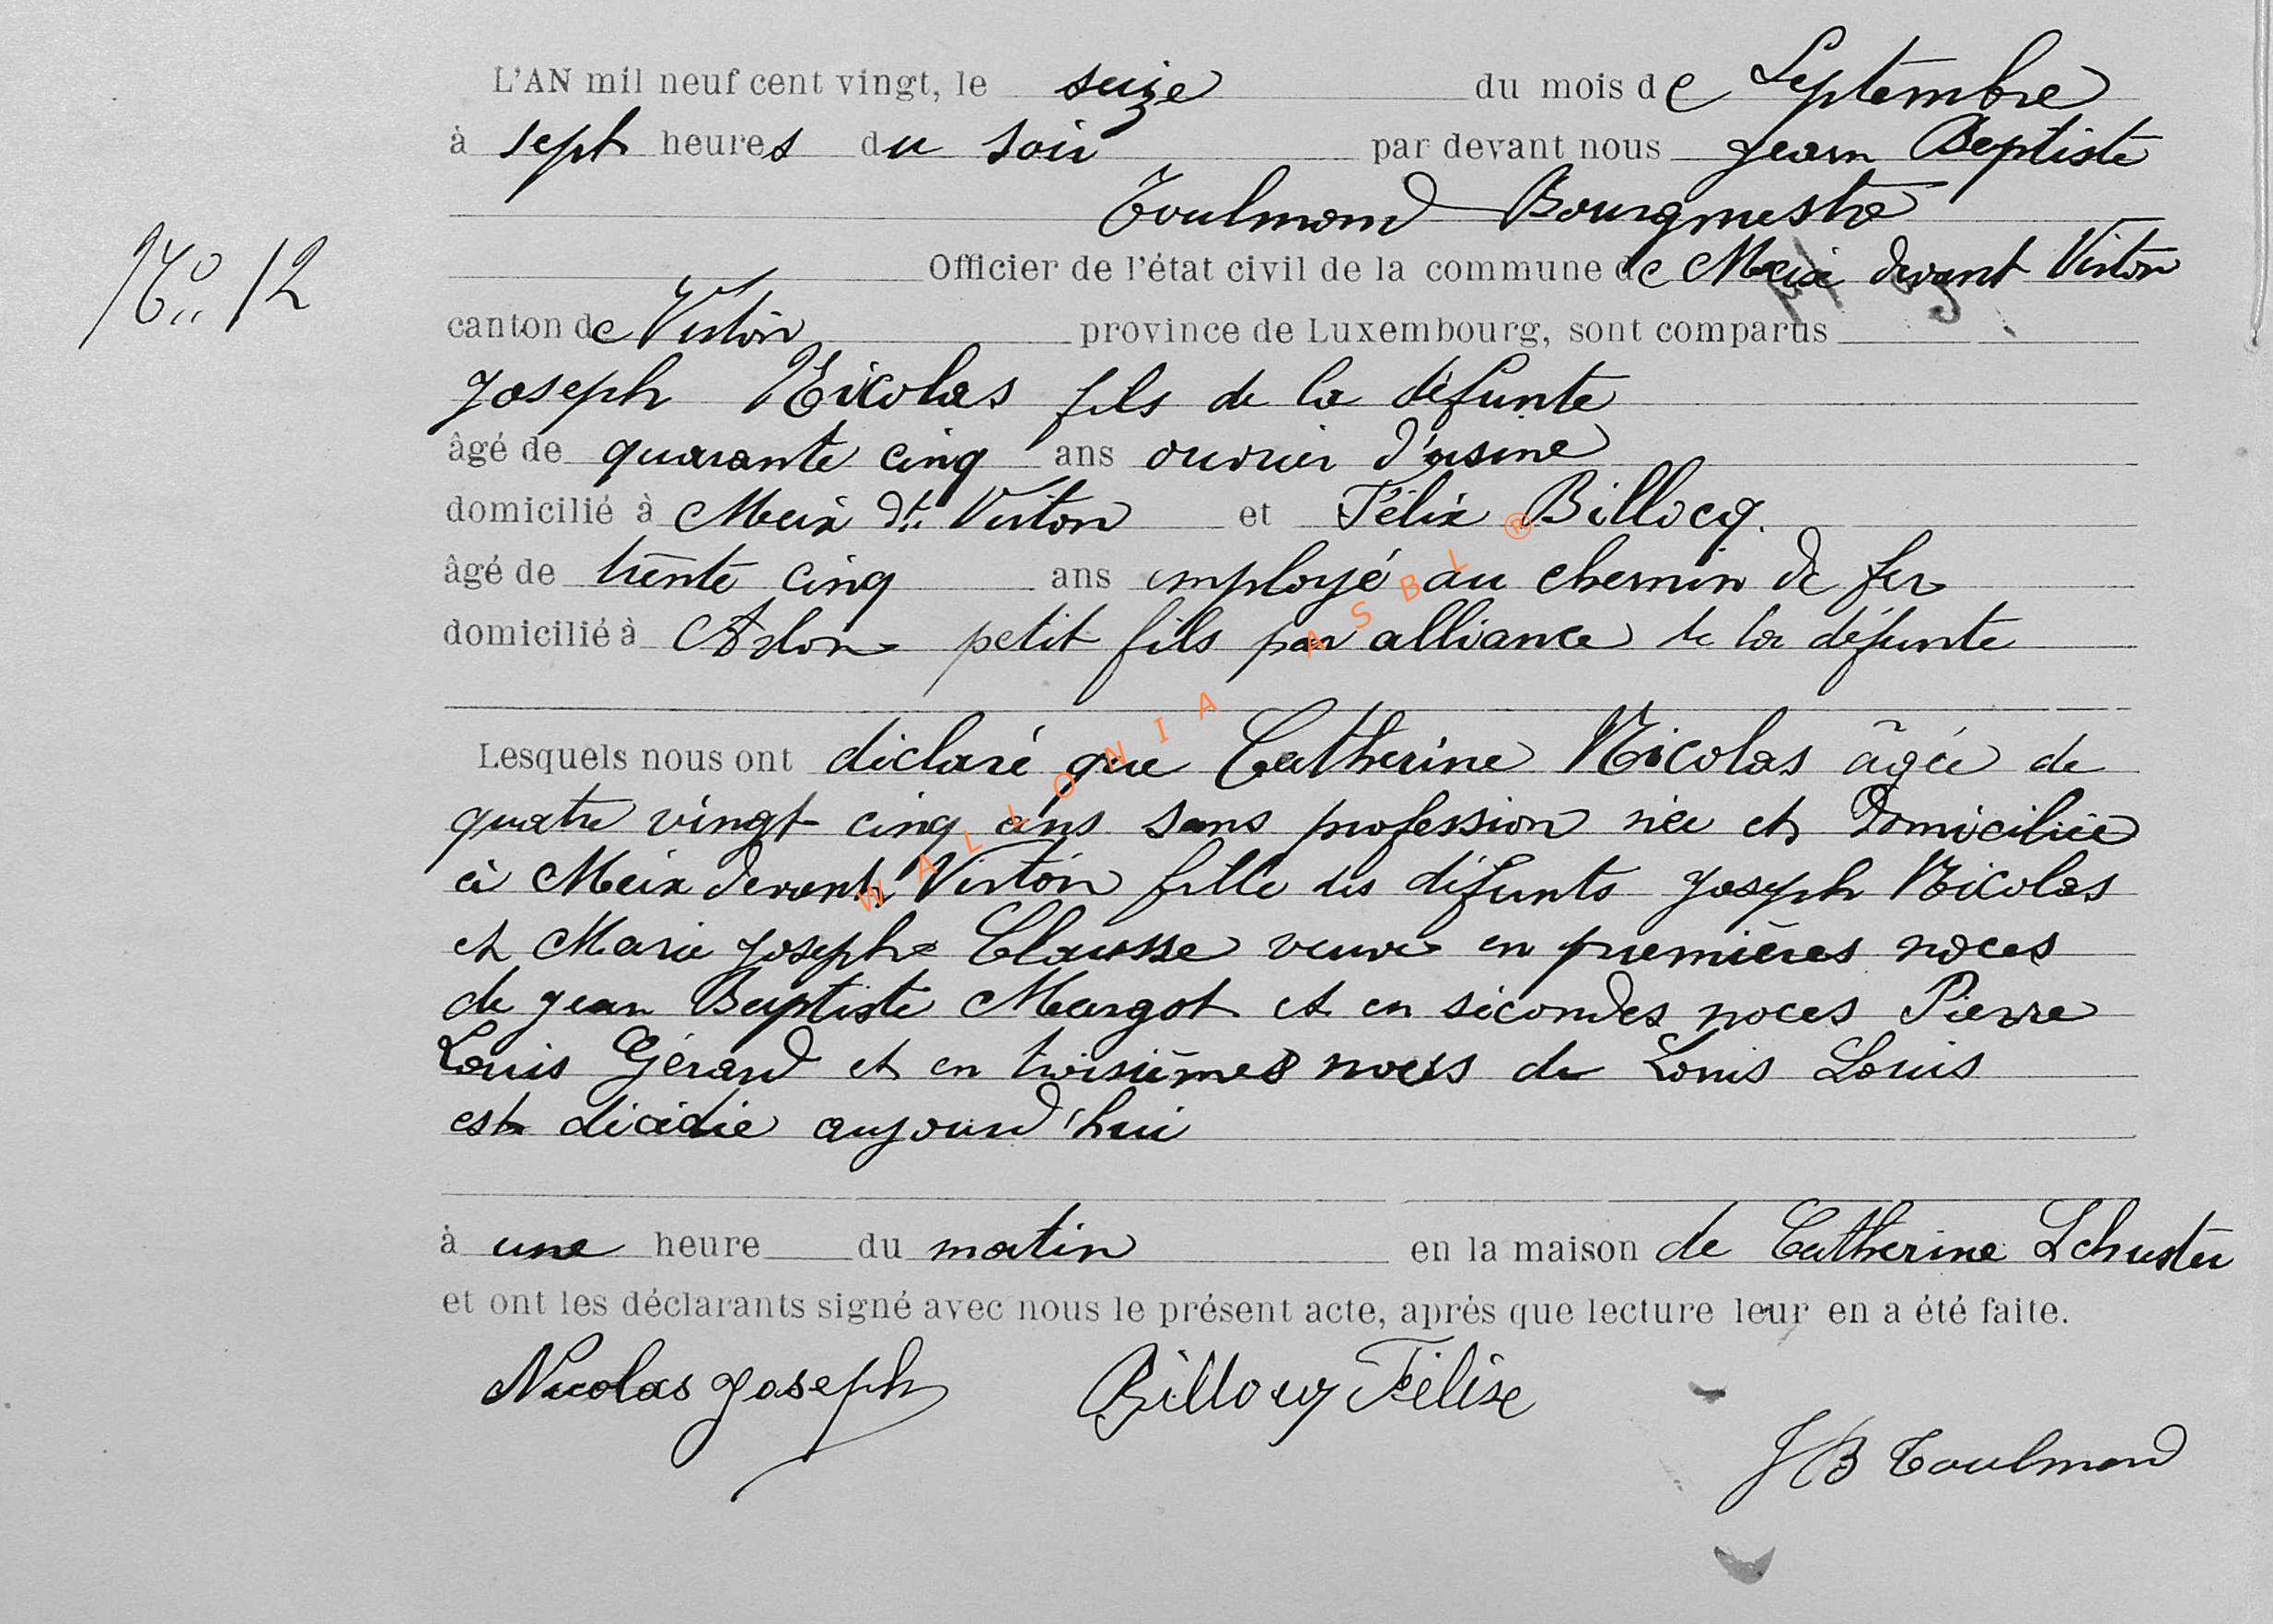 L'AN mil neuf cent vingt, le seize du mois de Septembre
à sept heures du soir par devant nous Jean Baptiste
Toulmond Bourgmestre
No 12
Officier de l'état civil de la commune de Meix devant Virton
canton de Virton province de Luxembourg, sont comparus
Joseph Nicolas fils de la défunte
âgé de quarante cinq ans ouvrier d'usine
domicilié à Meix dt Virton et Félix Billocq.
âgé de trente cinq ans employé au chemin de fer
domicilié à Arlon petit fils par alliance de la défunte
Lesquels nous ont déclaré que Catherine Nicolas âgée de
quatre vingt cinq ans sans profession née et domiciliée
à Meix devant Virton fille des défunts Joseph Nicolas
et Marie Josephe Clausse veuve en premières noces
de Jean Baptiste Margot et en sécondes noces Pierre
Louis Gérard et en troisièmes noces de Louis Louis
est décédée aujourd'hui
à une heure du matin en la maison de Catherine Schuster
et ont les déclarants signé avec nous le présent acte, après que lecture leur en a été faite.
Nicolas Joseph Billocq Félix
JB Toulmond
WALLONIA ASBL ®